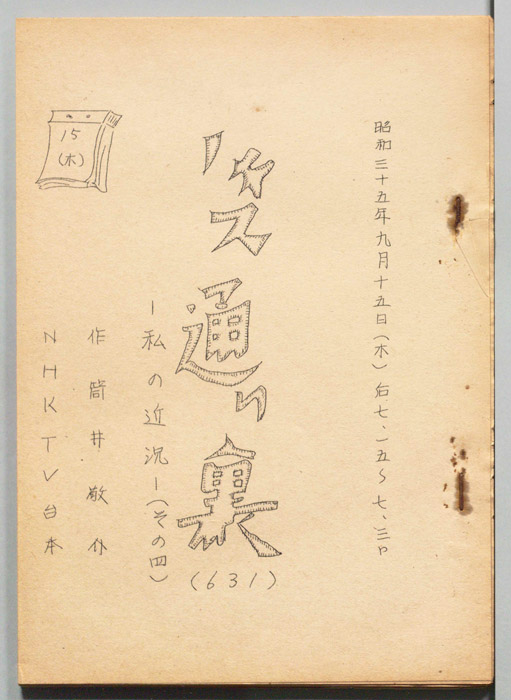 昭和三十五年九月十五日(木)后七、一五〜七、三〇
バス通り裏
(631)
―私の近況―(その四)
作 筒井敬介
NHKTV台本
15
(木)